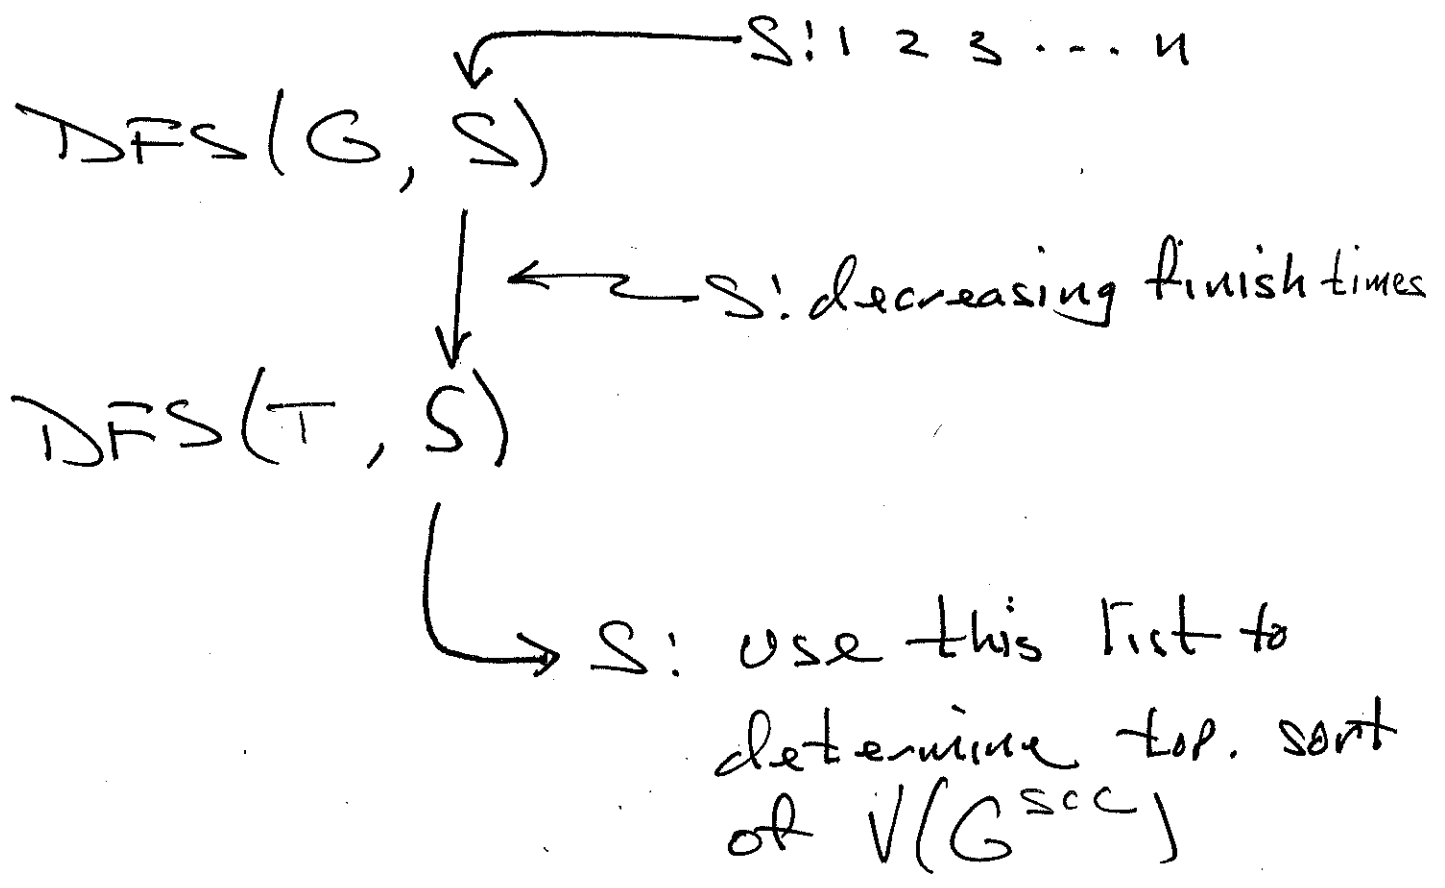 S: 1 2 3 ... n
DFS(G, S)
S: decreasing finish times
DFS(T, S)
S: use this list to
determine top. sort
of V(G^SCC)